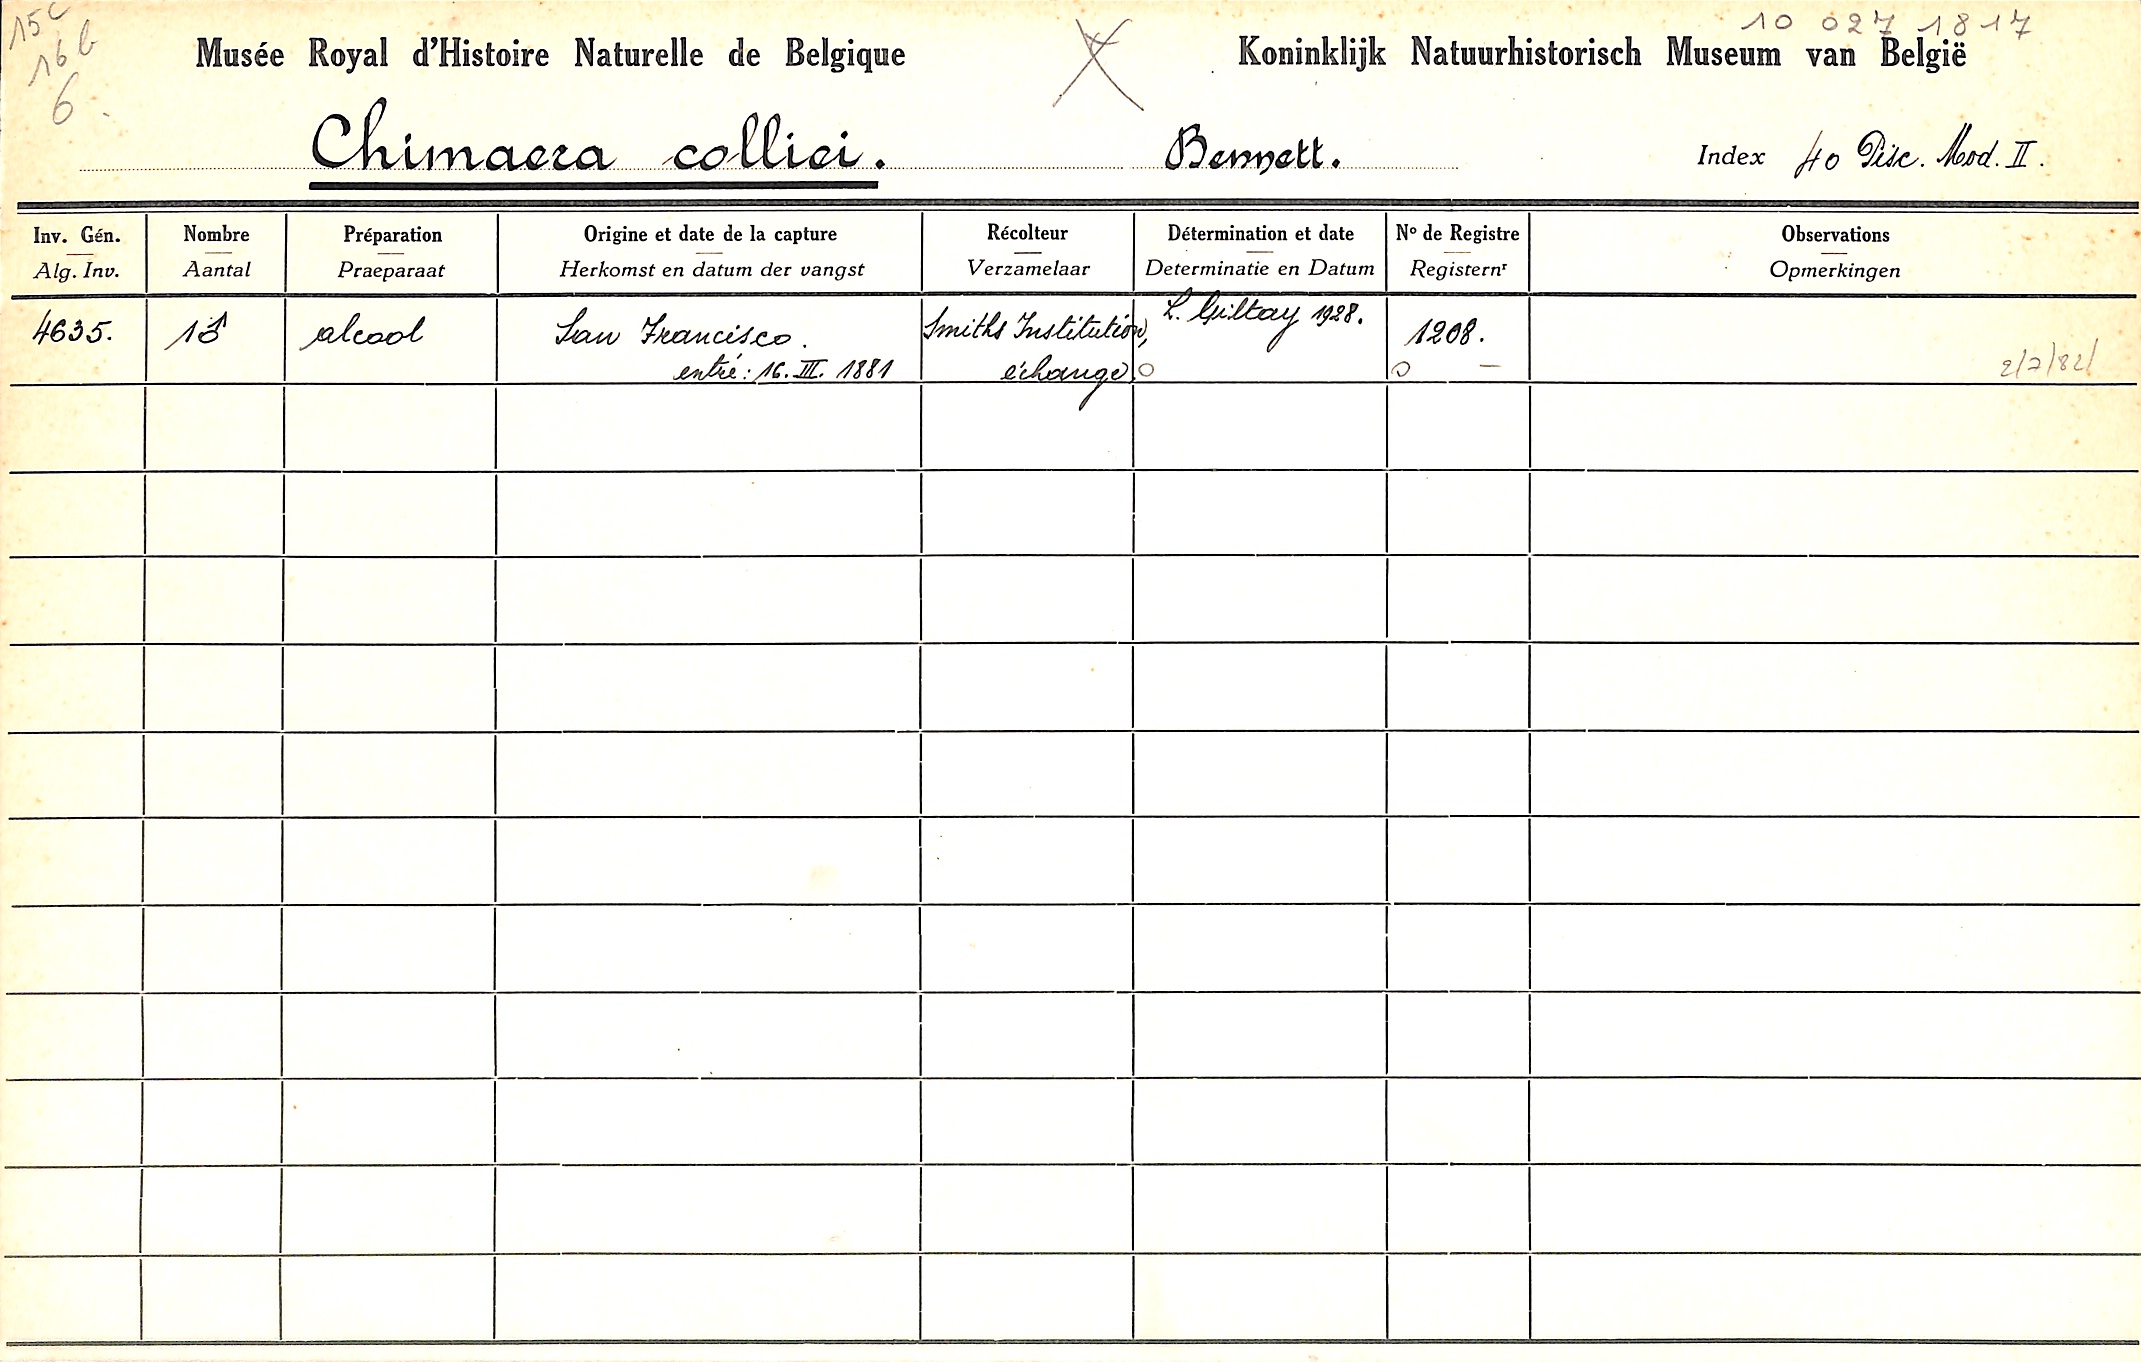 15c
16b
6.
10 027 1817
Musée Royal d'Histoire Naturelle de Belgique
Koninklijk Natuurhistorisch Museum van België
Chimaera colliei. Bennett. Index 40 Pisc. Mod. II.
Inv. Gén. Nombre Préparation Origine et date de la capture Récolteur Détermination et date Nº de Registre Observations
Alg. Inv. Aantal Praeparaat Herkomst en datum der vangst Verzamelaar Determinatie en Datum Registernʳ Opmerkingen
4635. 1♂ alcool San Francisco. Smiths Institution, L. Giltay 1928. 1208.
entré: 16. III. 1881 échange 2/7/82/